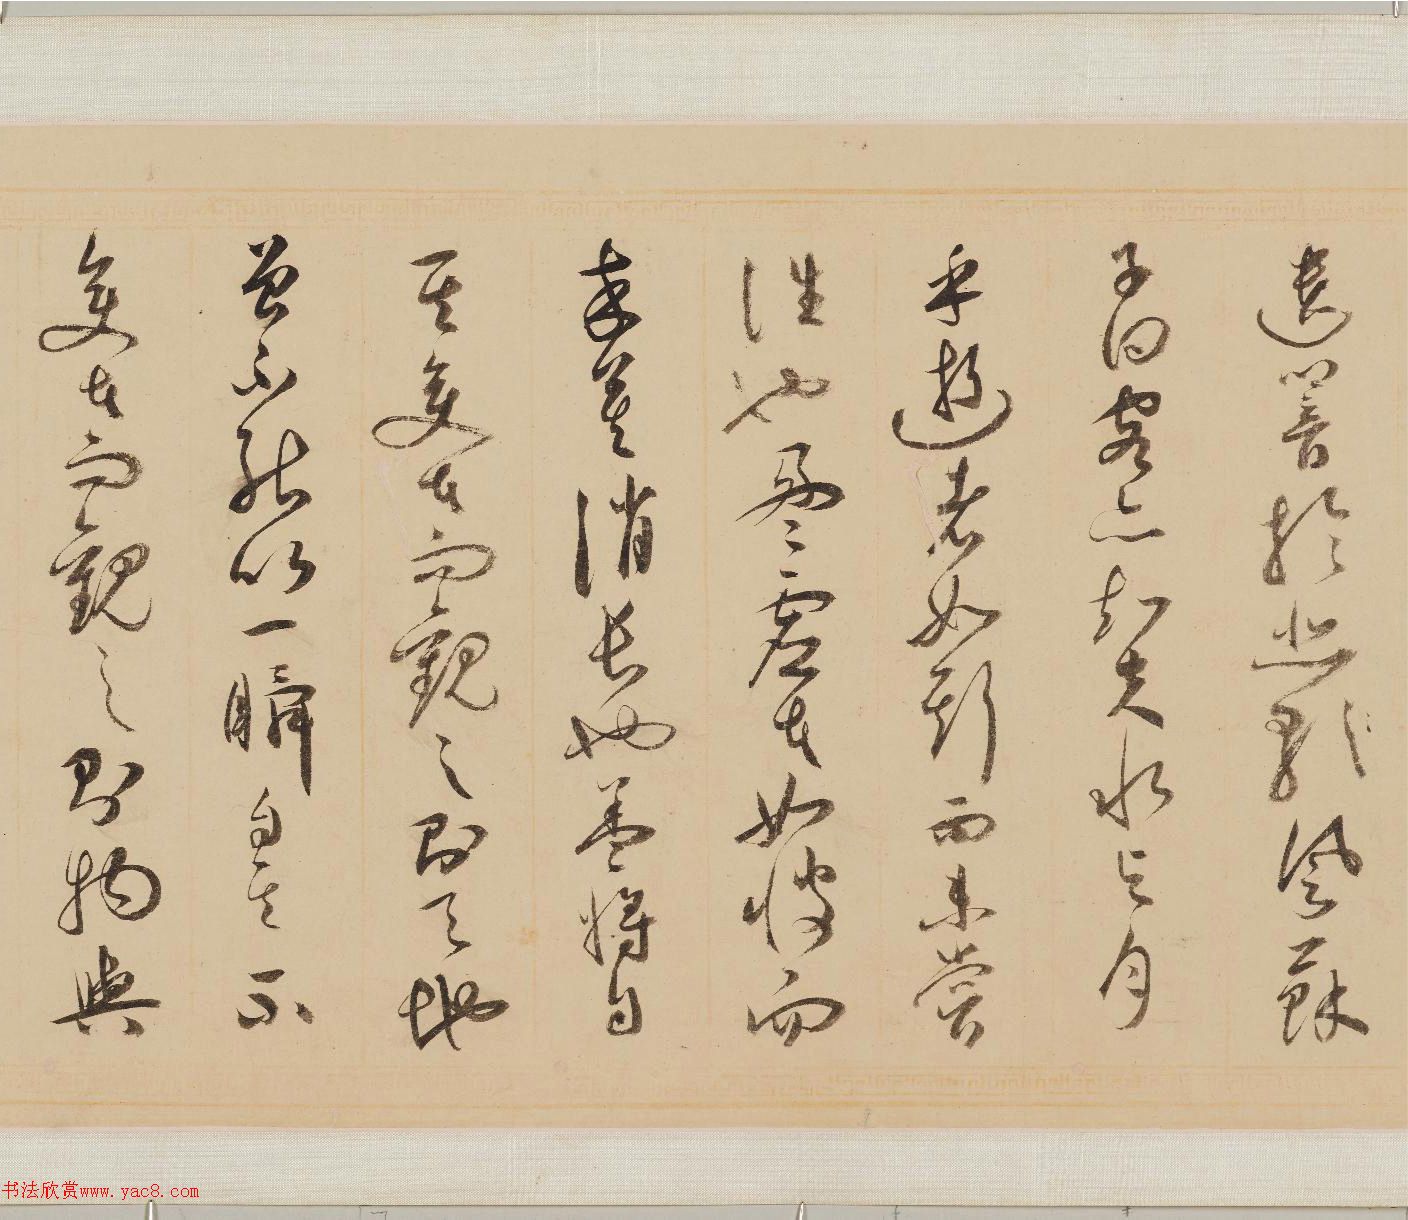 遺響於悲風蘇
子曰客亦知夫水与月
乎逝者如斯而未嘗
往也盈虛者如彼而
卒莫消長也蓋將自
其變者而觀之則天地
曾不能以一瞬自其不
變者而觀之則物與
书法欣赏www.yac8.com